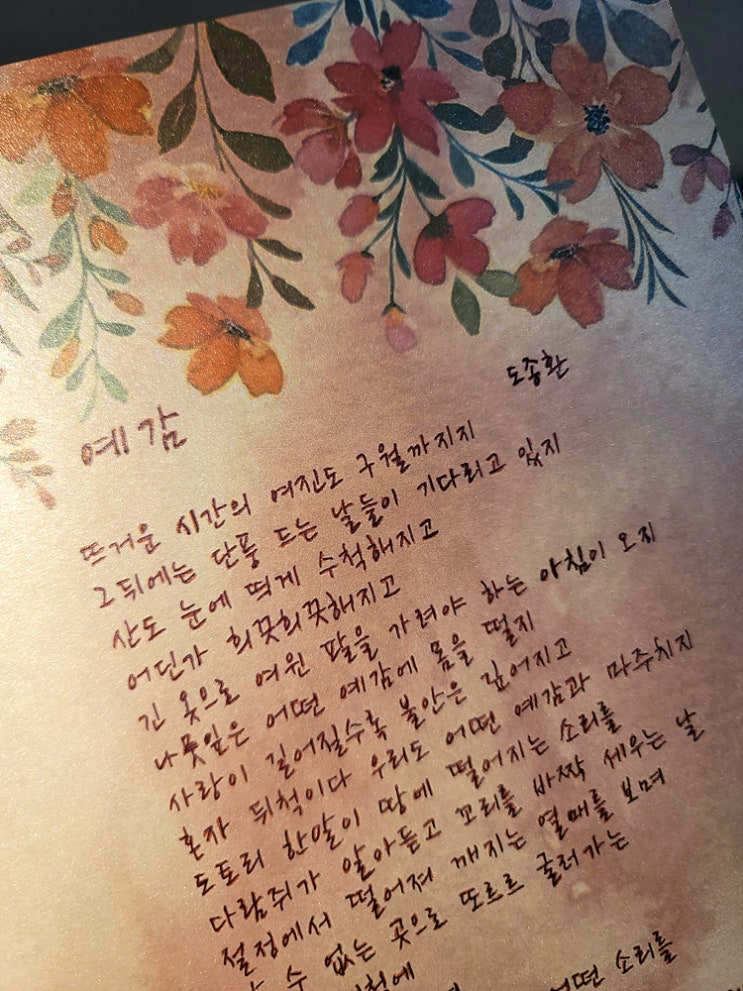 도종환
예감
뜨거운 시간의 여진도 구월까지지
그 뒤에는 단풍 드는 날들이 기다리고 있지
산도 눈에 띄게 수척해지고
어딘가 희끗희끗해지고
긴 옷으로 여윈 팔을 가려야 하는 아침이 오지
나뭇잎은 어떤 예감에 몸을 떨지
사랑이 길어질수록 불안은 깊어지고
혼자 뒤척이다 우리도 어떤 예감과 마주치지
도토리 한알이 땅에 떨어지는 소리를
다람쥐가 알아듣고 꼬리를 바짝 세우는 날
절정에서 떨어져 깨지는 열매를 보며
수 없는 곳으로 또르르 굴러가는
어떤 소리를